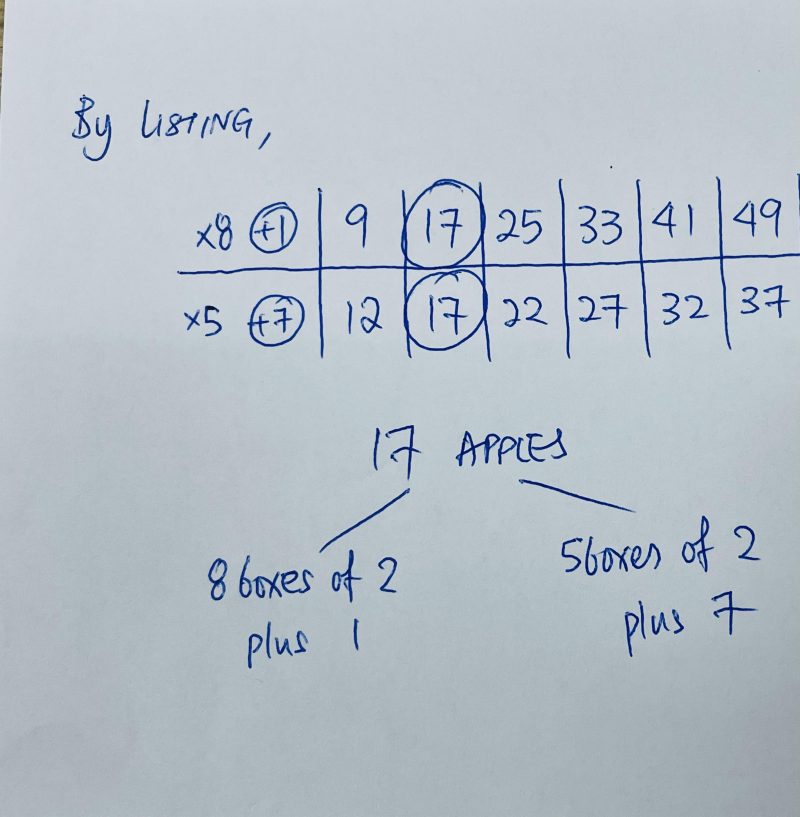 By LISTING,
x8 +1 9 17 25 33 41 49
x5 +7 12 17 22 27 32 37
17 APPLES
8 boxes of 2
plus 1
5 boxes of 2
plus 7